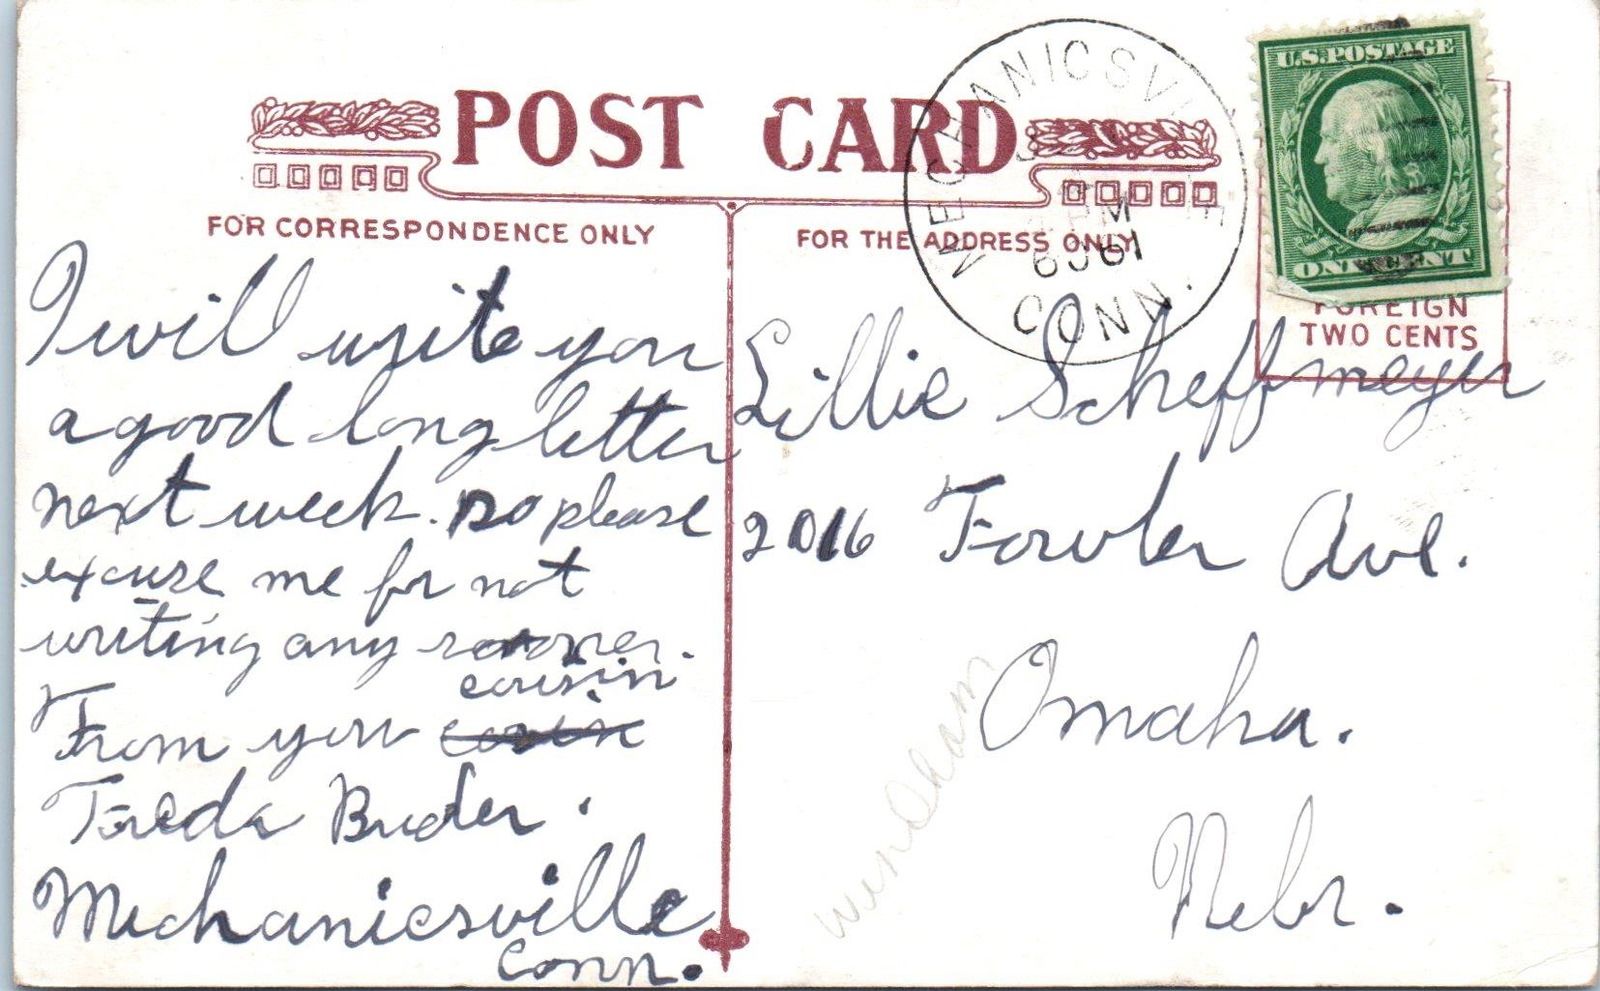 POST CARD
FOR CORRESPONDENCE ONLY
FOR THE ADDRESS ONLY
MECHANICSVILLE
PM
CONN.
U.S. POSTAGE
ONE CENT
FOREIGN
TWO CENTS
I will write you
a good long letter
next week. so please
excuse me for not
writing any sooner.
cousin
From your
Freda Bruder.
Mechanicsville
Conn.
Lillie Scheffmeyer
2016 Fowler Ave.
Omaha.
Nebr.
windham